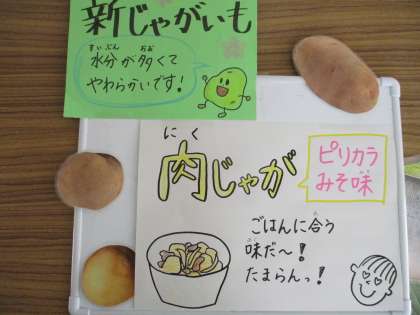 新じゃがいも
すいぶん おお
水分が多くて
やわらかいです!
にく
肉じゃが
ピリカラ
みそ味
ごはんに合う
味だ〜!
たまらんっ!